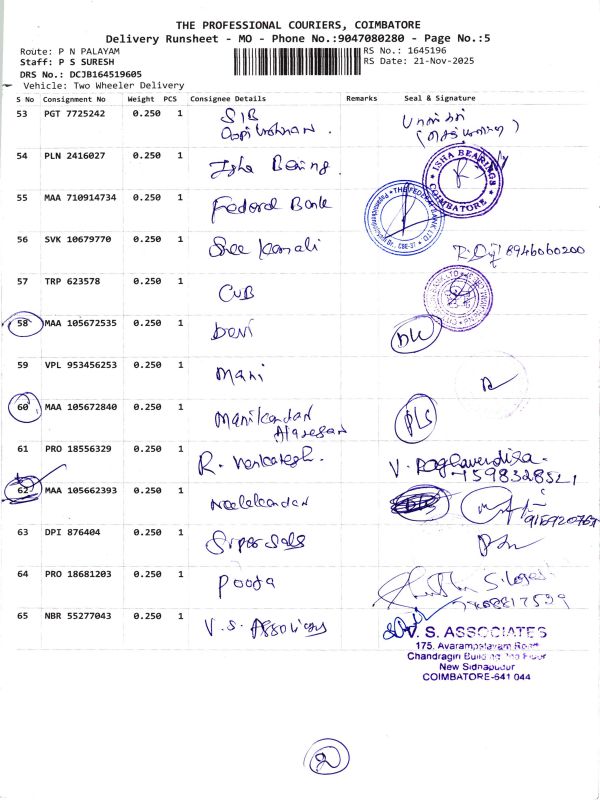 THE PROFESSIONAL COURIERS, COIMBATORE
Delivery Runsheet - MO - Phone No.:9047080280 - Page No.:5
Route: P N PALAYAM
RS No.: 1645196
Staff: P S SURESH
RS Date: 21-Nov-2025
DRS No.: DCJB164519605
Vehicle: Two Wheeler Delivery
S No Consignment No Weight PCS Consignee Details Remarks Seal & Signature
53 PGT 7725242 0.250 1 SIB
54 PLN 2416027 0.250 1 Isha Bearing. ISHA BEARINGS COIMBATORE
55 MAA 710914734 0.250 1 Federal Bank THE FEDERAL BANK LTD. CBE-37
56 SVK 10679770 0.250 1 Sree Kamali 8946060200
57 TRP 623578 0.250 1 CUB
58 MAA 105672535 0.250 1 Devi DL
59 VPL 953456253 0.250 1 Mani
60 MAA 105672840 0.250 1 Manikandan PLS
Alagesan
61 PRO 18556329 0.250 1 R. Venkatesh. V. Raghavendira
62 MAA 105662393 0.250 1 Neelakandan
63 DPI 876404 0.250 1 Super Sales
64 PRO 18681203 0.250 1 Pooja
65 NBR 55277043 0.250 1 V.S. Associates
V. S. ASSOCIATES
175, Avarampalayam Road
Chandragiri Building, IInd Floor
New Sidhapudur
COIMBATORE-641 044
2